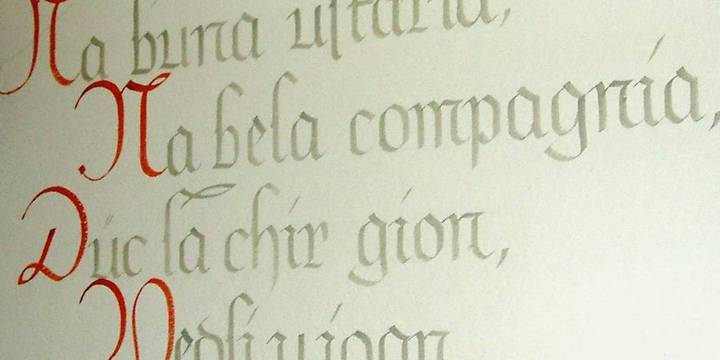 Na buna ustaria,
Na bela compagnia,
Düc la chir gion,
Vedli